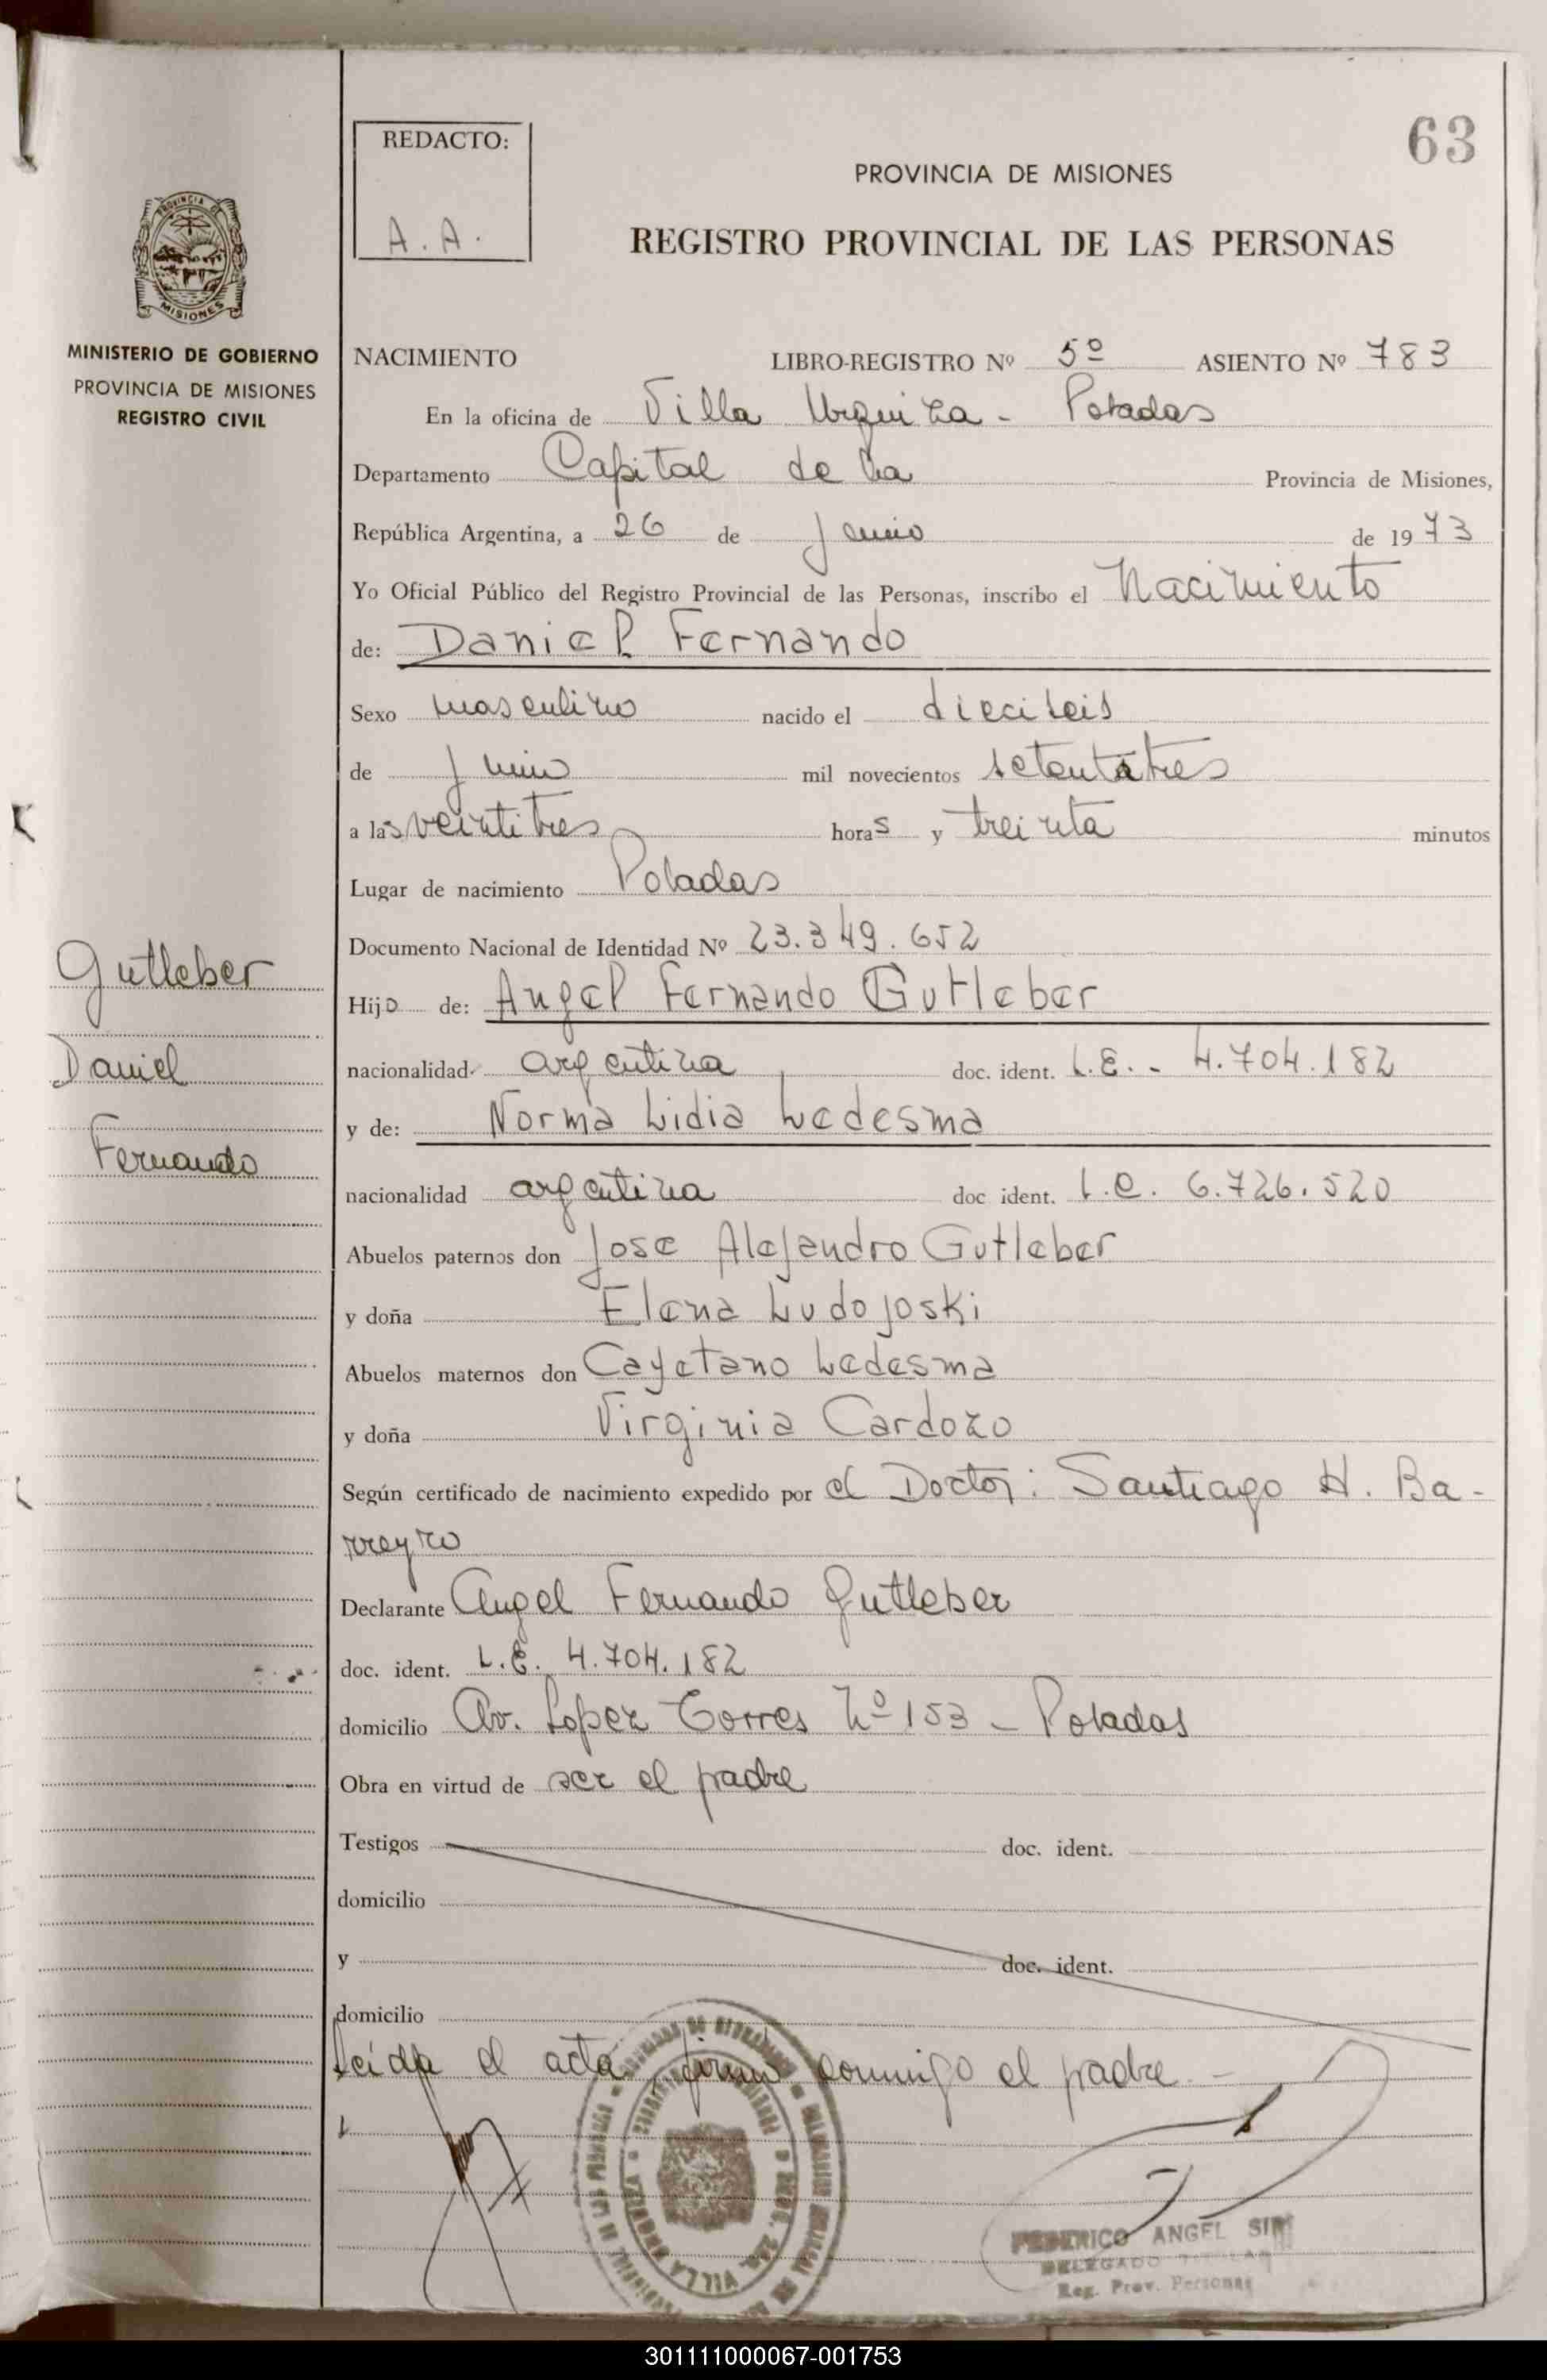 63
REDACTO:
A. A.
PROVINCIA DE MISIONES
REGISTRO PROVINCIAL DE LAS PERSONAS
PROVINCIA DE
MISIONES
MINISTERIO DE GOBIERNO
PROVINCIA DE MISIONES
REGISTRO CIVIL
NACIMIENTO LIBRO-REGISTRO Nº 5º ASIENTO Nº 783
En la oficina de Villa Urquiza - Posadas
Departamento Capital de la Provincia de Misiones,
República Argentina, a 26 de Junio de 1973
Yo Oficial Público del Registro Provincial de las Personas, inscribo el Nacimiento
de: Daniel Fernando
Sexo masculino nacido el dieciseis
de Junio mil novecientos setentatres
a las veintitres horas y treinta minutos
Lugar de nacimiento Posadas
Documento Nacional de Identidad Nº 23.349.652
Hijo de: Angel Fernando Gutleber
nacionalidad argentina doc. ident. L.E. - 4.704.182
y de: Norma Lidia Ledesma
nacionalidad argentina doc ident. L.C. 6.726.520
Abuelos paternos don Jose Alejandro Gutleber
y doña Elena Ludojoski
Abuelos maternos don Cayetano Ledesma
y doña Virginia Cardozo
Según certificado de nacimiento expedido por el Doctor: Santiago H. Ba-
rreyro
Declarante Angel Fernando Gutleber
doc. ident. L.E. 4.704.182
domicilio Av. Lopez Torres Nº 153 - Posadas
Obra en virtud de ser el padre
Testigos doc. ident.
domicilio
y doc. ident.
domicilio
Leida el acta, firma conmigo el padre. -
Gutleber
Daniel
Fernando
FEDERICO ANGEL
DELEGADO TITULAR
Reg. Prov. Personas
301111000067-001753